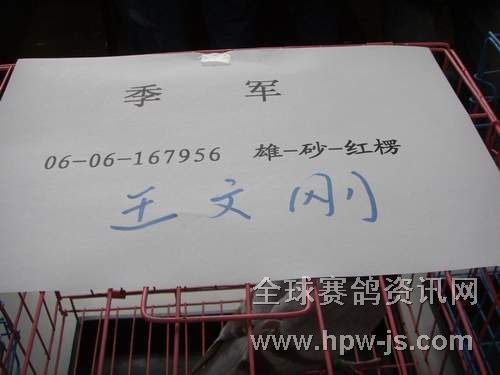 季 军
06-06-167956 雄-砂-红楞
王文刚
全球赛鸽资讯网
www.hpw-js.com